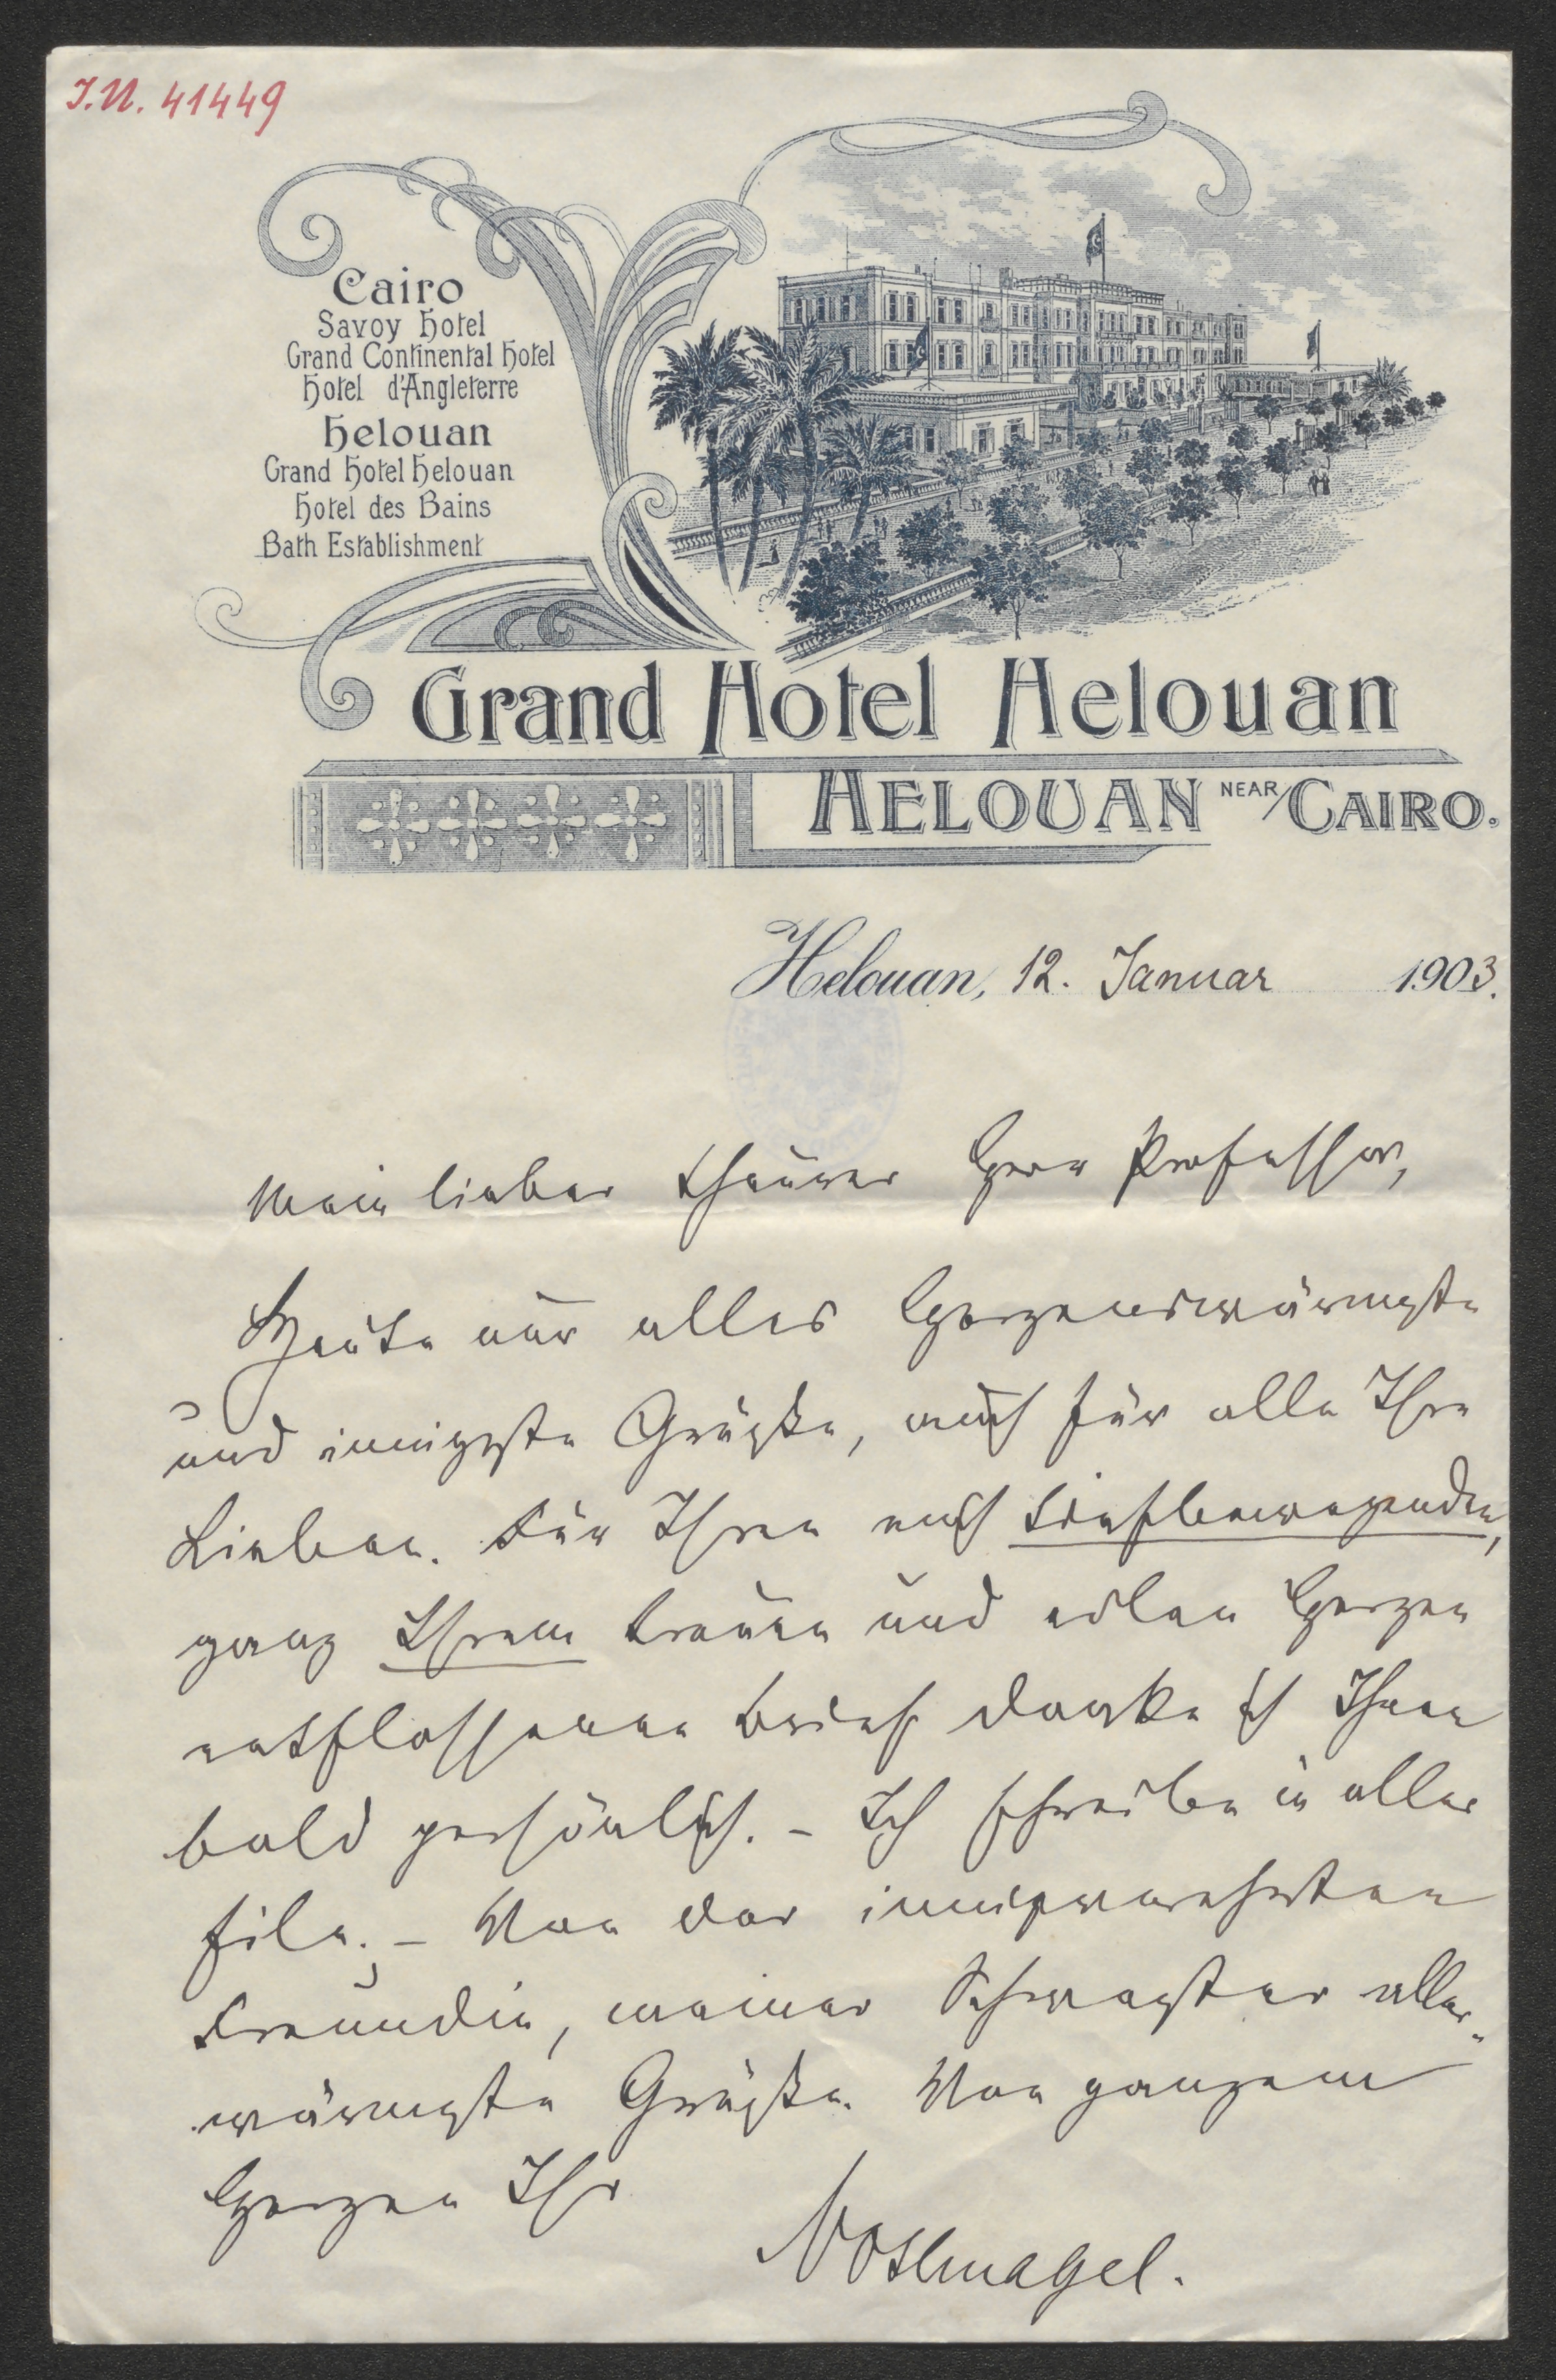 I.N. 41449
Cairo
Savoy Hotel
Grand Continental Hotel
Hotel d'Angleterre
Helouan
Grand Hotel Helouan
Hotel des Bains
Bath Establishment
Grand Hotel Helouan
HELOUAN NEAR CAIRO.
Helouan, 12. Januar 1903.
Mein lieber theurer Herr Professor,
Heute nur alles Herzenswärmste
und innigste Grüße, auch für alle Ihre
Lieben. Für Ihren mich tiefbewegenden,
ganz Ihrem treuen und edlen Herzen
entflossenen Brief danke ich Ihnen
bald persönlich. – Ich schreibe in aller
Eile. – Von der innigverehrten
Freundin, meiner Schwester aller-
wärmste Grüße. Von ganzem
Herzen Ihr
Nothnagel.